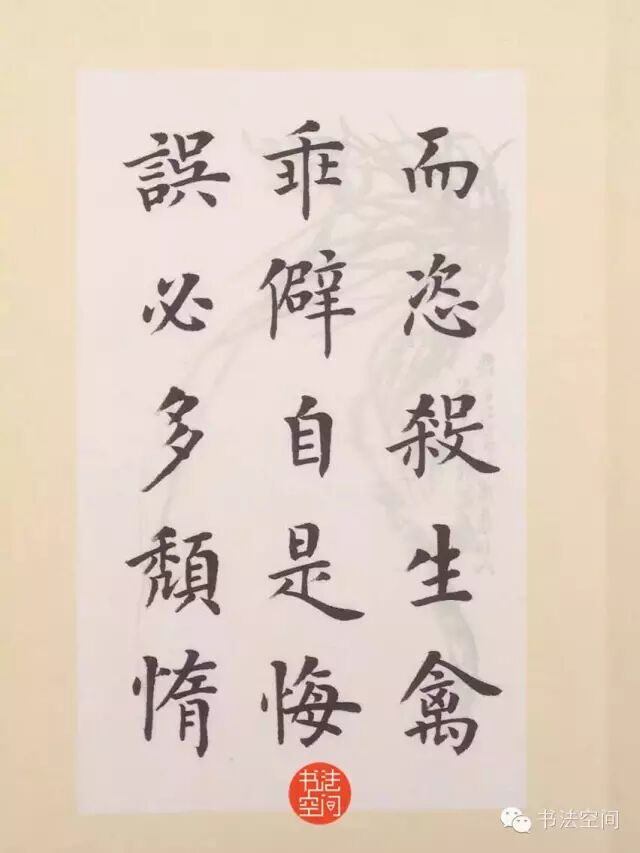 而恣殺生禽
乖僻自是悔
誤必多頹惰
书法
空间
书法空间